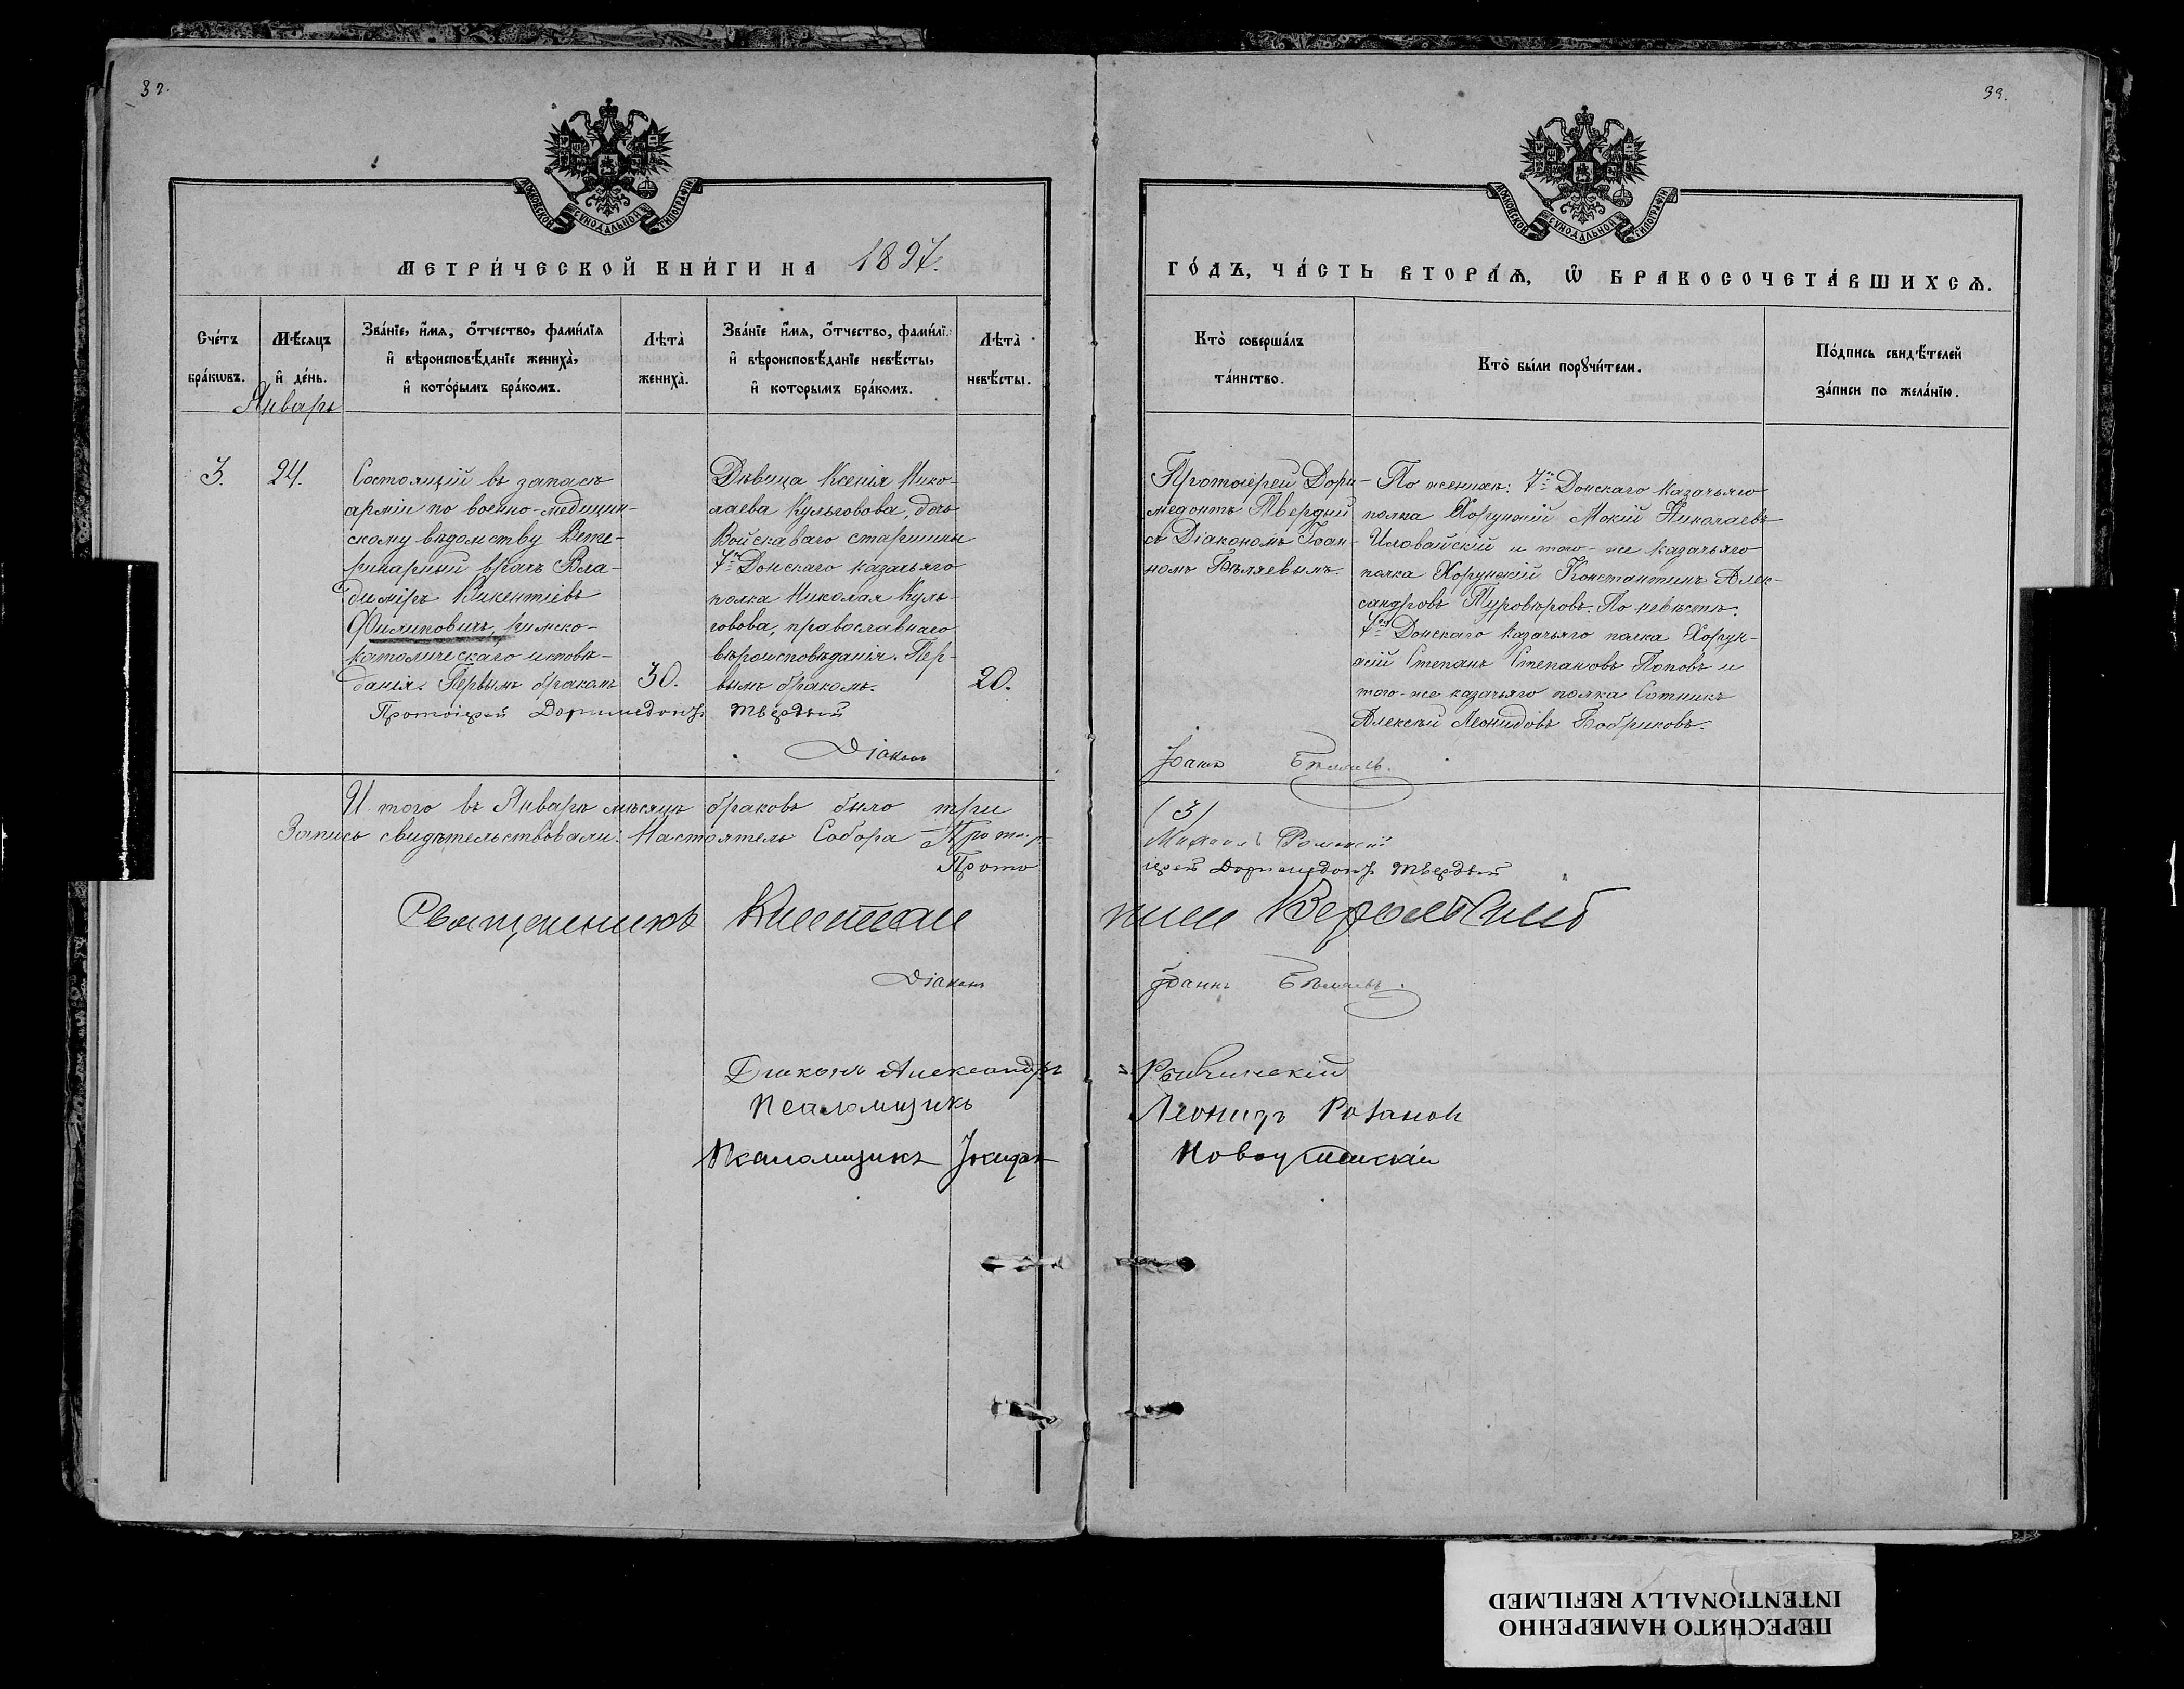 32.
МОСКОВСКОЙ СѴНОДАЛЬНОЙ ТИПОГРАФІИ.
МЕТРИ́ЧЕСКОЙ КНИ́ГИ НА 1897.
Сче́тъ бра́кѡвъ.
Мѣ́сяцъ и҆ де́нь.
Зва́нїе, и҆́мѧ, ѻ҆́тчество, фами́лїѧ
и҆ вѣроисповѣ́данїе жениха̀,
и҆ кото́рымъ бра́комъ.
Лѣта̀ жениха̀.
Зва́нїе и҆́мѧ, ѻ҆́тчество, фами́лї
и҆ вѣроисповѣ́данїе невѣ́сты,
и҆ которымъ бра́комъ.
Лѣта̀ невѣ́сты.
Январь
3.
24.
Состоящій въ запасѣ
арміи по военно-медицин-
скому вѣдомству Вете-
ринарный врачъ Вла-
диміръ Викентіевъ
Филиповичъ, римско-
католическаго исповѣ-
данія. Первымъ бракомъ
30.
Дѣвица Ксенія Нико-
лаева Кульговова, дочь
Войсковаго старшины
7го Донскаго казачьяго
полка Николая Куль-
говова, православнаго
вѣроисповѣданія. Пер-
вымъ бракомъ.
20.
Протоіерей Доримедонтъ Твердый
Діаконъ
И того въ Январѣ мѣсяцѣ браковъ было три
Запись свидѣтельствовали: Настоятель Собора Протоіер
Прото
Священникъ
Діаконъ
Діаконъ Александръ
Псаломщикъ
Псаломщикъ
33.
МОСКОВСКОЙ СѴНОДАЛЬНОЙ ТИПОГРАФІИ.
ГО́ДЪ, ЧА́СТЬ ВТОРА́Ѧ, Ѡ҆ БРАКОСОЧЕТА́ВШИХСѦ.
Кто̀ соверша́лъ
та́инство.
Кто̀ бы́ли порꙋчи́тели.
По́дпись свидѣ́телей
за́писи по жела́нїю.
Протоіерей Дори-
медонтъ Твердый
съ Діакономъ Іоан-
номъ Бѣляевымъ.
По женихѣ: 7го Донскаго казачьяго
полка Хорунжій Мокій Николаевъ
Иловайскій и того-же казачьяго
полка Хорунжій Константинъ Алек-
сандровъ Туровѣровъ. По невѣстѣ:
7го Донскаго казачьяго полка Хорун-
жій Степанъ Степановъ Поповъ и
того-же казачьяго полка Сотникъ
Алексѣй Леонидовъ Бобриковъ.
Іоаннъ Бѣляевъ.
(3)
Михаилъ
іерей Доримедонтъ Твердый
Іоаннъ Бѣляевъ.
Леонидъ Розановъ
ПЕРЕСНЯТО НАМЕРЕННО
INTENTIONALLY REFILMED